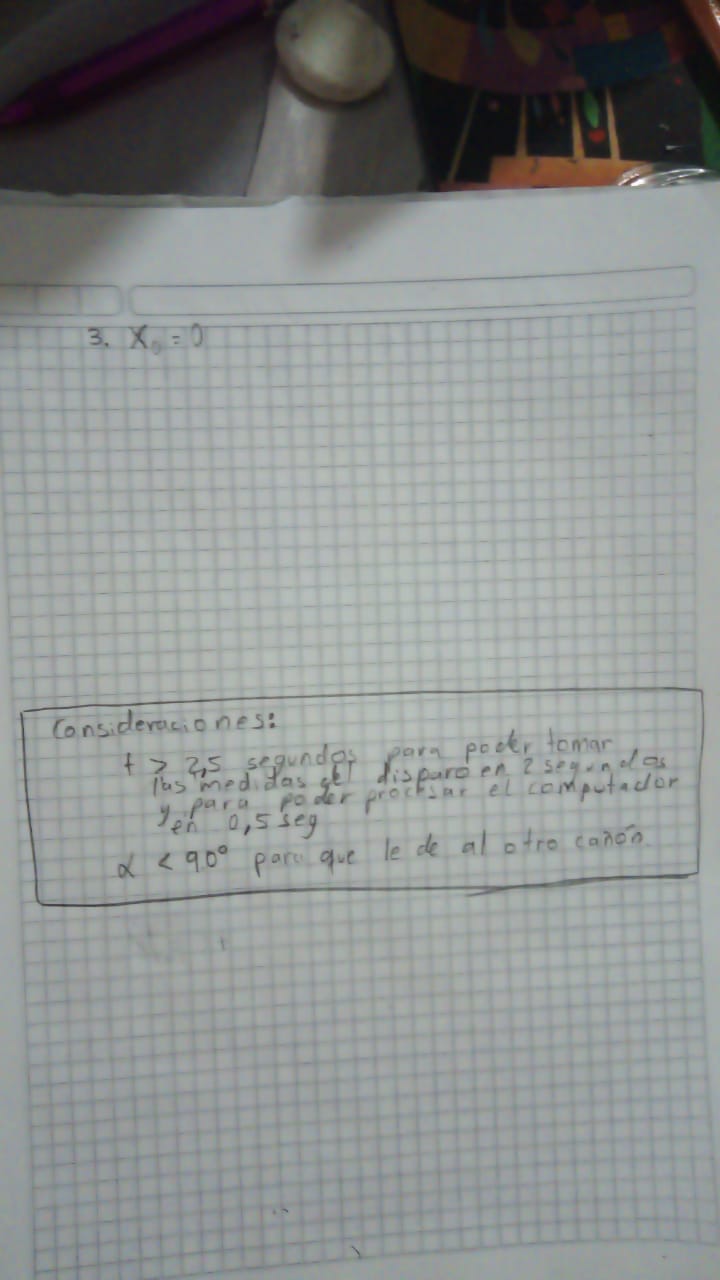 3. X₀ = 0
Consideraciones:
t > 2,5 segundos para poder tomar
las medidas del disparo en 2 segundos
y para poder procesar el computador
en 0,5 seg
α < 90° para que le de al otro cañón.